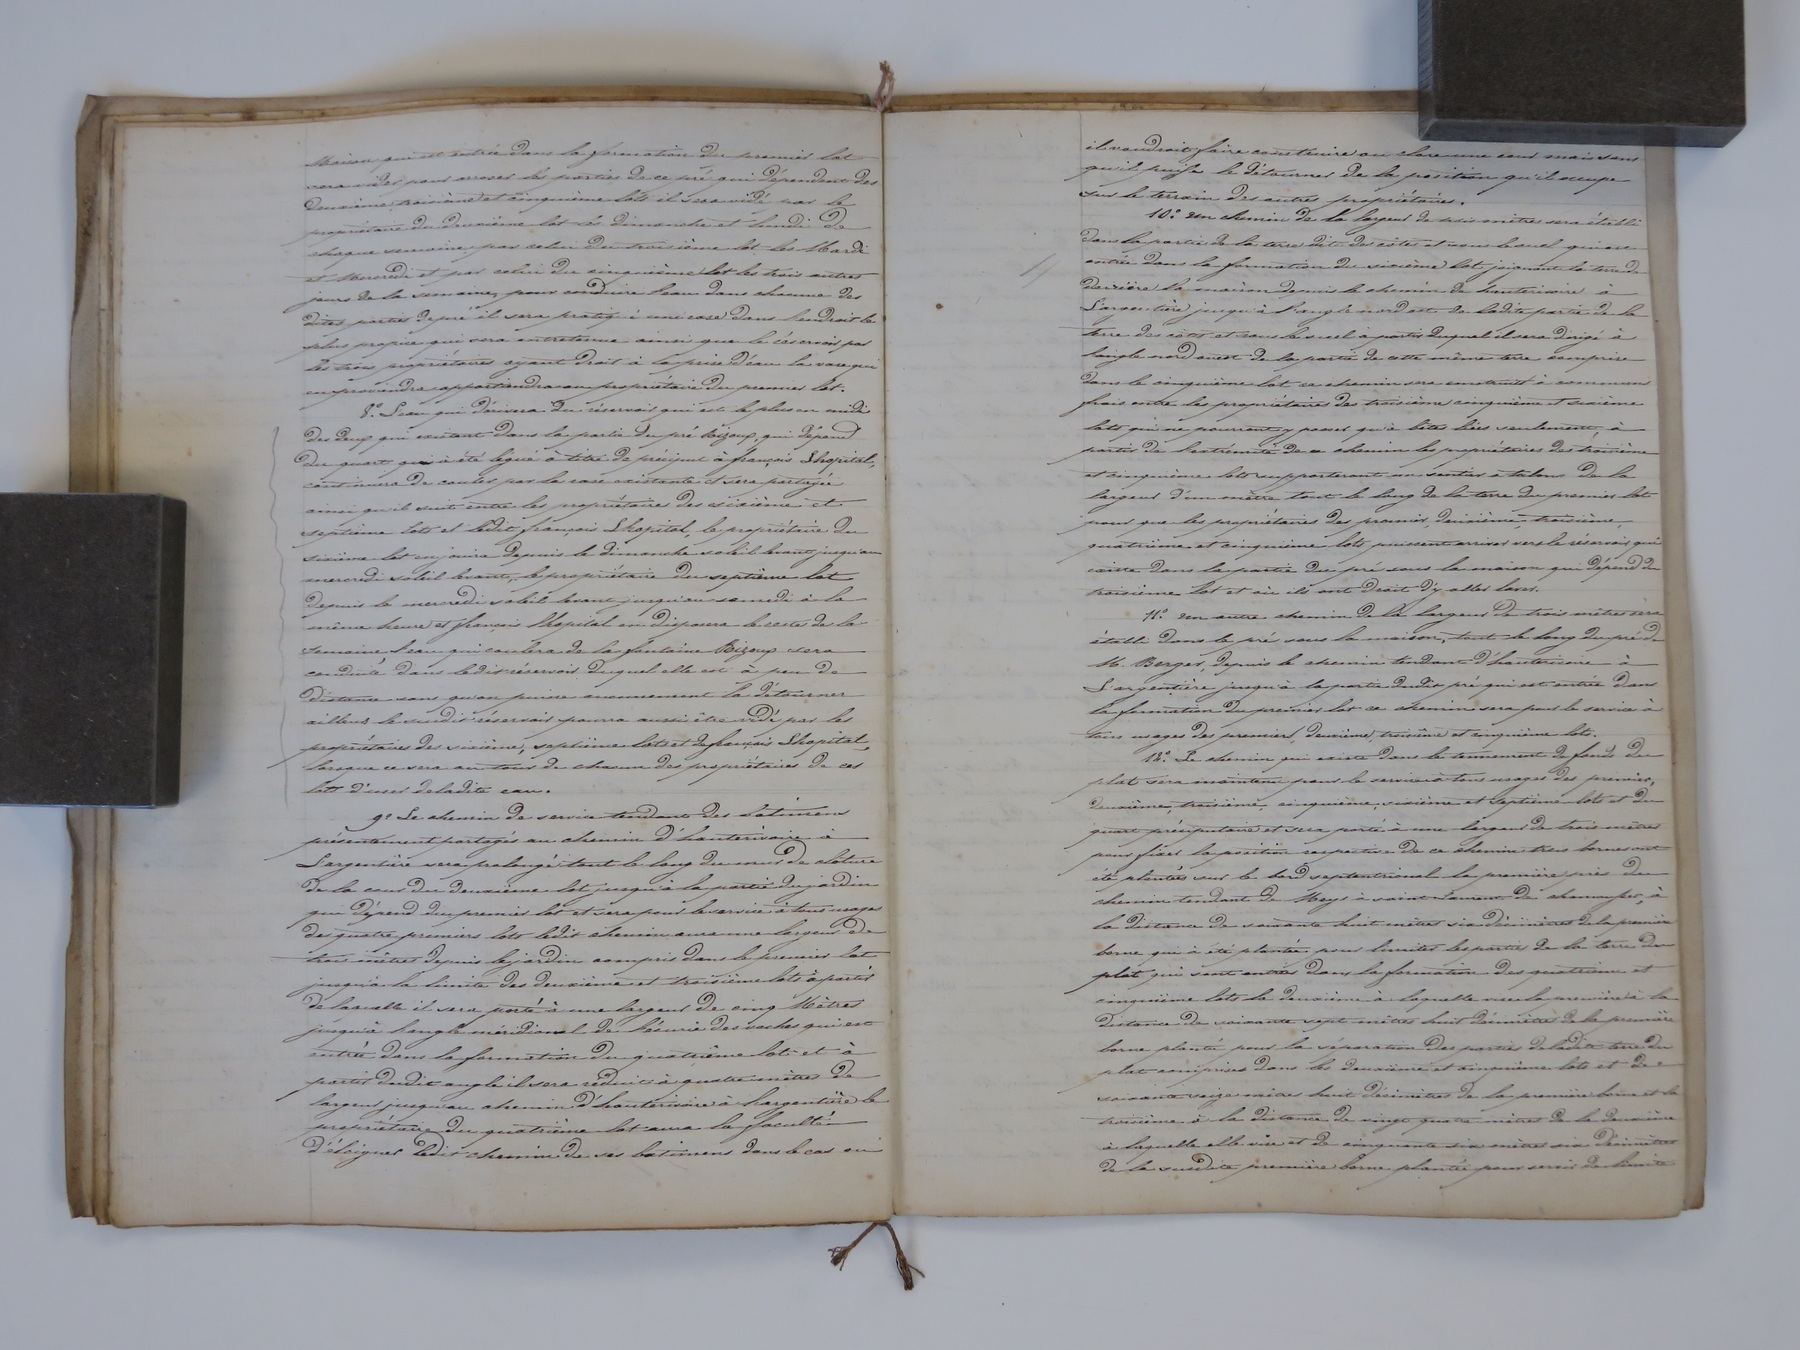 Maison qui est entrée dans la formation du premier lot
sera vidé pour arroser les parties de ce pré qui dépendent des
deuxième, troisième et cinquième lots il sera vidé par le
propriétaire du deuxième lot les dimanche et lundi de
chaque semaine, par celui du troisième lot les Mardi
et Mercredi et par celui du cinquième lot les trois autres
jours de la semaine, pour conduire l'eau dans chacune des
dites parties de pré il sera pratiqué une rase dans l'endroit le
plus propice qui sera entretenue ainsi que le réservoir par
les trois propriétaires ayant droit à la prise d'eau la vase qui
en proviendra appartiendra au propriétaire du premier lot.
8.º L'eau qui dérivera du réservoir qui est le plus en midi
des deux qui existent dans la partie du pré Bizoux, qui dépend
du quart qui a été légué à titre de préciput à françois Lhopital,
continuera de couler par la rase existante et sera partagée
ainsi qu'il suit entre les propriétaires des sixième et
septième lots et ledit françois Lhopital, le propriétaire du
sixième lot en jouira depuis le dimanche soleil levant jusqu'au
mercredi soleil levant, le propriétaire du septième lot
depuis le mercredi soleil levant jusqu'au samedi à la
même heure et françois Lhopital en disposera le reste de la
semaine l'eau qui coulera de la fontaine Bizoux sera
conduite dans ledit réservoir duquel elle est à peu de
distance sans qu'on puisse aucunement la détourner
ailleurs le susdit réservoir pourra aussi être vidé par les
propriétaires des sixième, septième lots et de françois Lhopital,
lorsque ce sera au tour de chacun des propriétaires de ces
lots d'user de ladite eau.
9.º Le chemin de service tendant des batimens
présentement partagés au chemin d'hauterivoire à
L'argentière sera prolongé tout le long du mur de cloture
de la cour du deuxième lot jusqu'à la partie du jardin
qui dépend du premier lot et sera pour le service à tous usages
des quatre premiers lots ledit chemin aura une largeur de
trois mètres depuis le jardin compris dans le premier lot
jusqu'à la limite des deuxième et troisième lots à partir
de laquelle il sera porté à une largeur de cinq Mètres
jusqu'à l'angle méridional de l'écurie des vaches qui est
entrée dans la formation du quatrième lot et à
partir dudit angle il sera réduit à quatre mètres de
largeur jusqu'au chemin d'hauterivoire à Largentière le
propriétaire du quatrième lot aura la faculté
d'éloigner ledit chemin de ses batimens dans le cas où
il voudrait faire construire ou clore une cour mais sans
qu'il puisse le détourner de la position qu'il occupe
sur le terrain des autres propriétaires.
10.º Un chemin de la largeur de trois mètres sera établi
dans la partie de la terre dite des côtes et sous le suel qui est
entrée dans la formation du sixième lot joignant la terre de
derrière la maison depuis le chemin de hauterivoire à
L'argentière jusqu'à l'angle nord est de ladite partie de la
terre des côtes et sous le suel à partir duquel il sera dirigé à
l'angle nord ouest de la partie de cette même terre comprise
dans le cinquième lot ce chemin sera construit à communs
frais entre les propriétaires des troisième cinquième et sixième
lots qui ne pourront y passer qu'à bêtes liées seulement, à
partir de l'extrémité de ce chemin les propriétaires des troisième
et cinquième lots supporteront un sentier à talons de la
largeur d'un mètre tout le long de la terre du premier lot
pour que les propriétaires des premier, deuxième, troisième,
quatrième et cinquième lots puissent arriver vers le réservoir qui
existe dans la partie du pré sous la maison qui dépend du
troisième lot et où ils ont droit d'y aller laver.
11.º Un autre chemin de la largeur de trois mètres sera
établi dans le pré sous la maison, tout le long du pré de
M. Berger, depuis le chemin tendant d'hauterivoire à
L'argentière jusqu'à la partie dudit pré qui est entrée dans
la formation du premier lot ce chemin sera pour le service à
tous usages des premier, deuxième, troisième et cinquième lots.
12.º Le chemin qui existe dans le tennement de fonds du
plat sera maintenu pour le service à tous usages des premier,
deuxième, troisième, cinquième, sixième et septième lots et du
quart préciputaire et sera porté à une largeur de trois mètres
pour fixer la position respective de ce chemin trois bornes ont
été plantées sur le bord septentrional la première près du
chemin tendant de Meys à saint Laurent de chamousset, à
la distance de soixante huit mètres six décimètres de la première
borne qui a été plantée pour limiter les parties de la terre du
plat qui sont entrées dans la formation des quatrième et
cinquième lots la deuxième à laquelle vise la première à la
distance de soixante sept mètres huit décimètres de la première
borne plantée pour la séparation des parties de ladite terre du
plat comprises dans les deuxième et cinquième lots et de
soixante seize mètres huit décimètres de la première borne et la
troisième à la distance de vingt quatre mètres de la deuxième
à laquelle elle vise et de cinquante six mètres six décimètres
de la susdite première borne plantée pour servir de limite